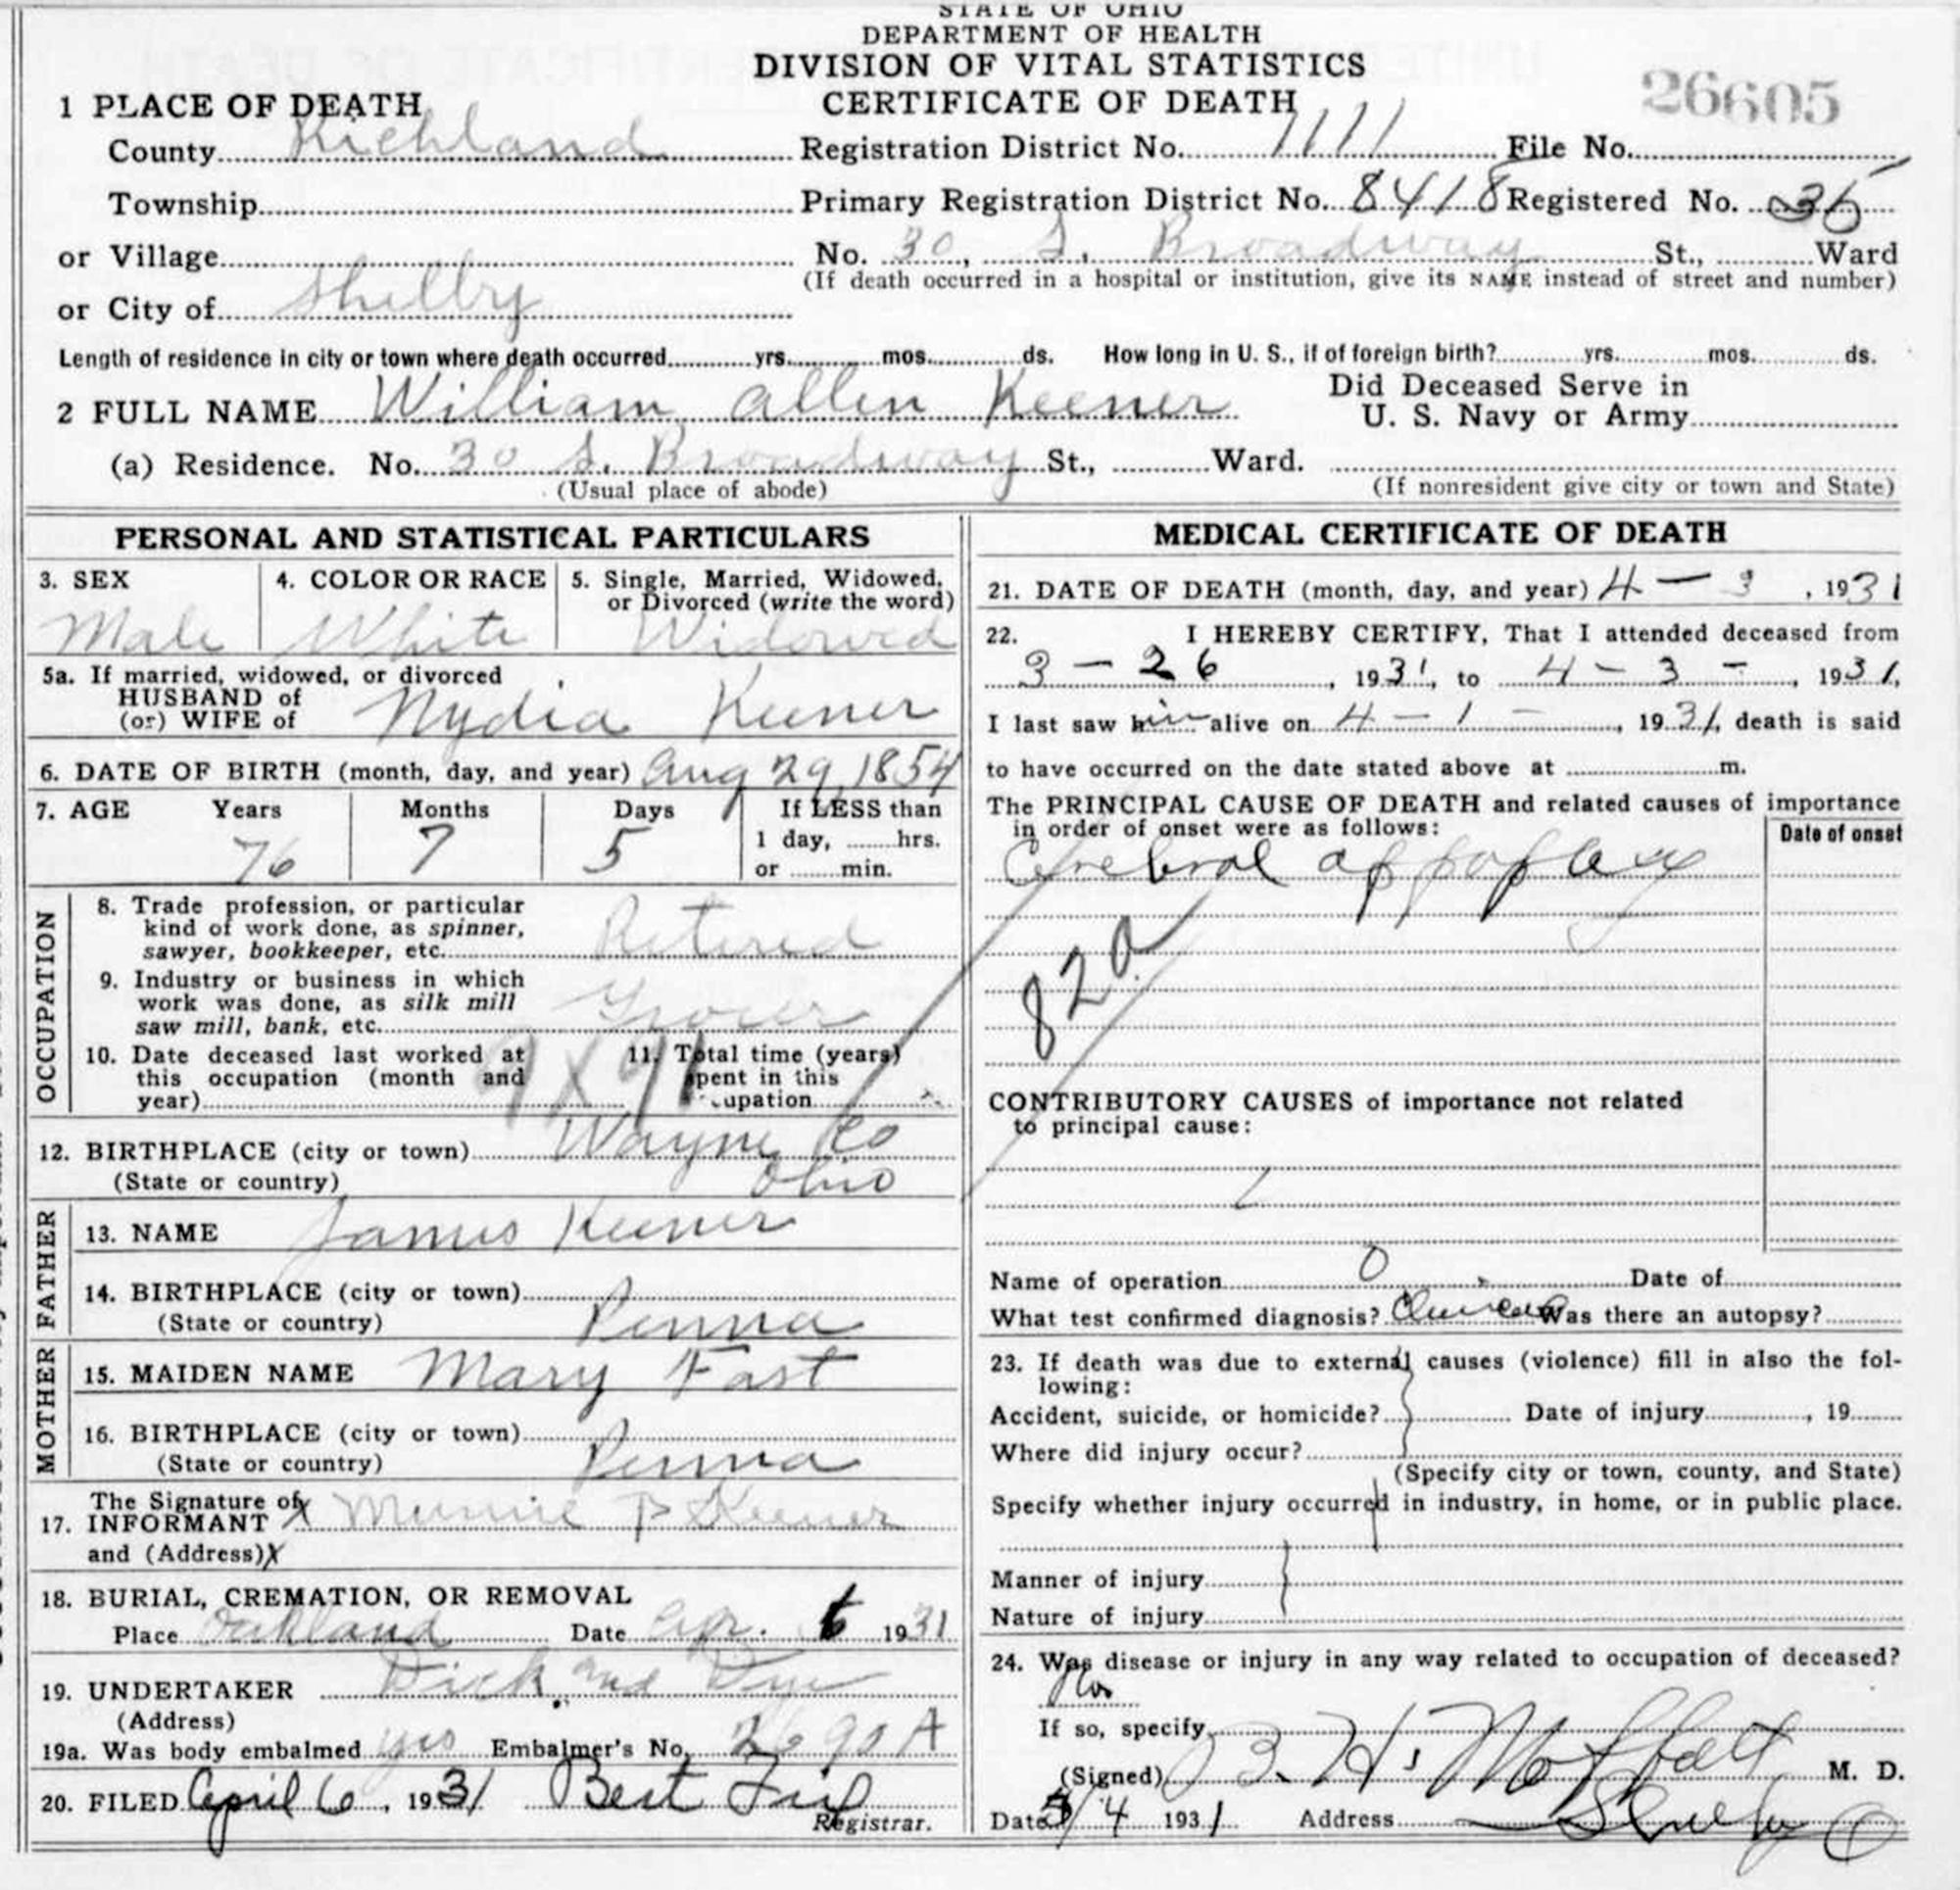 STATE OF OHIO
DEPARTMENT OF HEALTH
DIVISION OF VITAL STATISTICS
CERTIFICATE OF DEATH
26605
1 PLACE OF DEATH
County Richland Registration District No. 1111 File No.
Township Primary Registration District No. 8418 Registered No. 35
or Village No. 30, S. Broadway St., Ward
(If death occurred in a hospital or institution, give its NAME instead of street and number)
or City of Shelby
Length of residence in city or town where death occurred yrs. mos. ds. How long in U. S., if of foreign birth? yrs. mos. ds.
2 FULL NAME William Allen Keener Did Deceased Serve in U. S. Navy or Army
(a) Residence. No. 30 S. Broadway St., Ward.
(Usual place of abode) (If nonresident give city or town and State)
PERSONAL AND STATISTICAL PARTICULARS
3. SEX 4. COLOR OR RACE 5. Single, Married, Widowed, or Divorced (write the word)
Male White Widowed
5a. If married, widowed, or divorced
HUSBAND of
(or) WIFE of Nydia Keener
6. DATE OF BIRTH (month, day, and year) Aug 29, 1854
7. AGE Years Months Days If LESS than
76 7 5 1 day, hrs.
or min.
OCCUPATION
8. Trade profession, or particular
kind of work done, as spinner,
sawyer, bookkeeper, etc. Retired
9. Industry or business in which
work was done, as silk mill
saw mill, bank, etc. Grocer
10. Date deceased last worked at
this occupation (month and
year)
11. Total time (years)
spent in this
upation
12. BIRTHPLACE (city or town) Wayne Co
(State or country) Ohio
FATHER
13. NAME James Keener
14. BIRTHPLACE (city or town)
(State or country) Penna
MOTHER
15. MAIDEN NAME Mary Fast
16. BIRTHPLACE (city or town)
(State or country) Penna
The Signature of
17. INFORMANT X Minnie B Keener
and (Address) X
18. BURIAL, CREMATION, OR REMOVAL
Place Oakland Date Apr. 6 1931
19. UNDERTAKER Dick and Dye
(Address)
19a. Was body embalmed yes Embalmer's No. 2690 A
20. FILED April 6, 1931 Bert Fix
Registrar.
MEDICAL CERTIFICATE OF DEATH
21. DATE OF DEATH (month, day, and year) 4 - 3, 1931
22. I HEREBY CERTIFY, That I attended deceased from
3 - 26, 1931, to 4 - 3 -, 1931,
I last saw him alive on 4 - 1 -, 1931, death is said
to have occurred on the date stated above at m.
The PRINCIPAL CAUSE OF DEATH and related causes of importance
in order of onset were as follows:
Date of onset
Cerebral appoplexy
82a
CONTRIBUTORY CAUSES of importance not related
to principal cause:
Name of operation 0 Date of
What test confirmed diagnosis? Clinical Was there an autopsy?
23. If death was due to external causes (violence) fill in also the fol-
lowing:
Accident, suicide, or homicide? Date of injury, 19
Where did injury occur?
(Specify city or town, county, and State)
Specify whether injury occurred in industry, in home, or in public place.
Manner of injury
Nature of injury
24. Was disease or injury in any way related to occupation of deceased?
No
If so, specify
(Signed) B. H. Moffatt M. D.
Date /4 1931 Address Shelby O